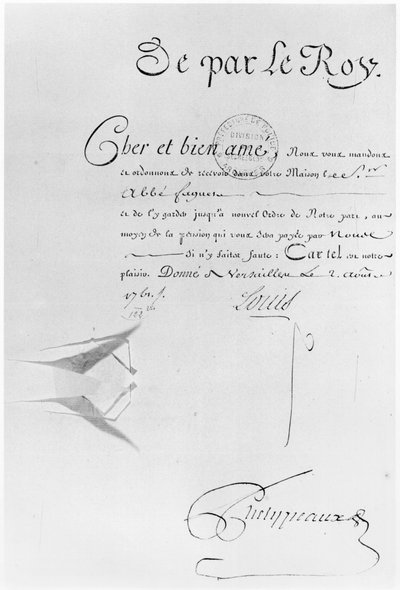 De par Le Roy.
Cher et bien amé, Nous vous mandons
et ordonnons de recevoir dans votre Maison le S.r
Abbé
et de l'y garder jusqu'à nouvel Ordre de Notre part, au
moyen de la pension qui vous sera payée par Nous
Si n'y faites faute: Car tel est notre
plaisir. Donné à Versailles Le 2. août
Louis
Phelypeaux